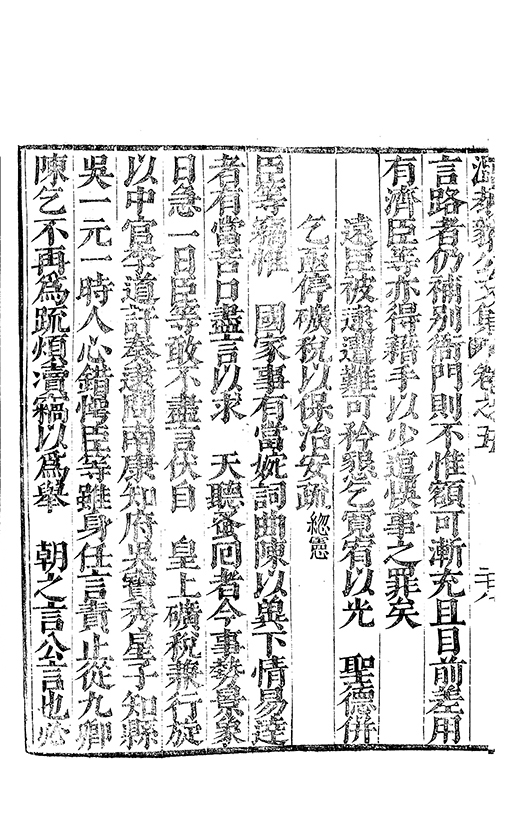 溫恭毅公文集 卷之五 二八
言路者仍補別衙門則不惟額可漸充且目前差用
有濟臣等亦得藉手以少逭悞事之罪矣
遠臣被逮遭難可矜懇乞寬宥以光 聖德併
乞亟停礦稅以保治安疏 總憲
臣等竊惟 國家事有當婉詞曲陳以與下情易達
者有當苦口盡言以求 天聽蚤囘者今事勢
日急一日臣等敢不盡言伏自 皇上礦稅兼行旋
以中官李道訐奏逮問南康知府吳寶秀星子知縣
吳一元一時人心錯愕臣等雖身任言責止從九卿
陳乞不再為疏煩瀆竊以為舉 朝之言公言也必